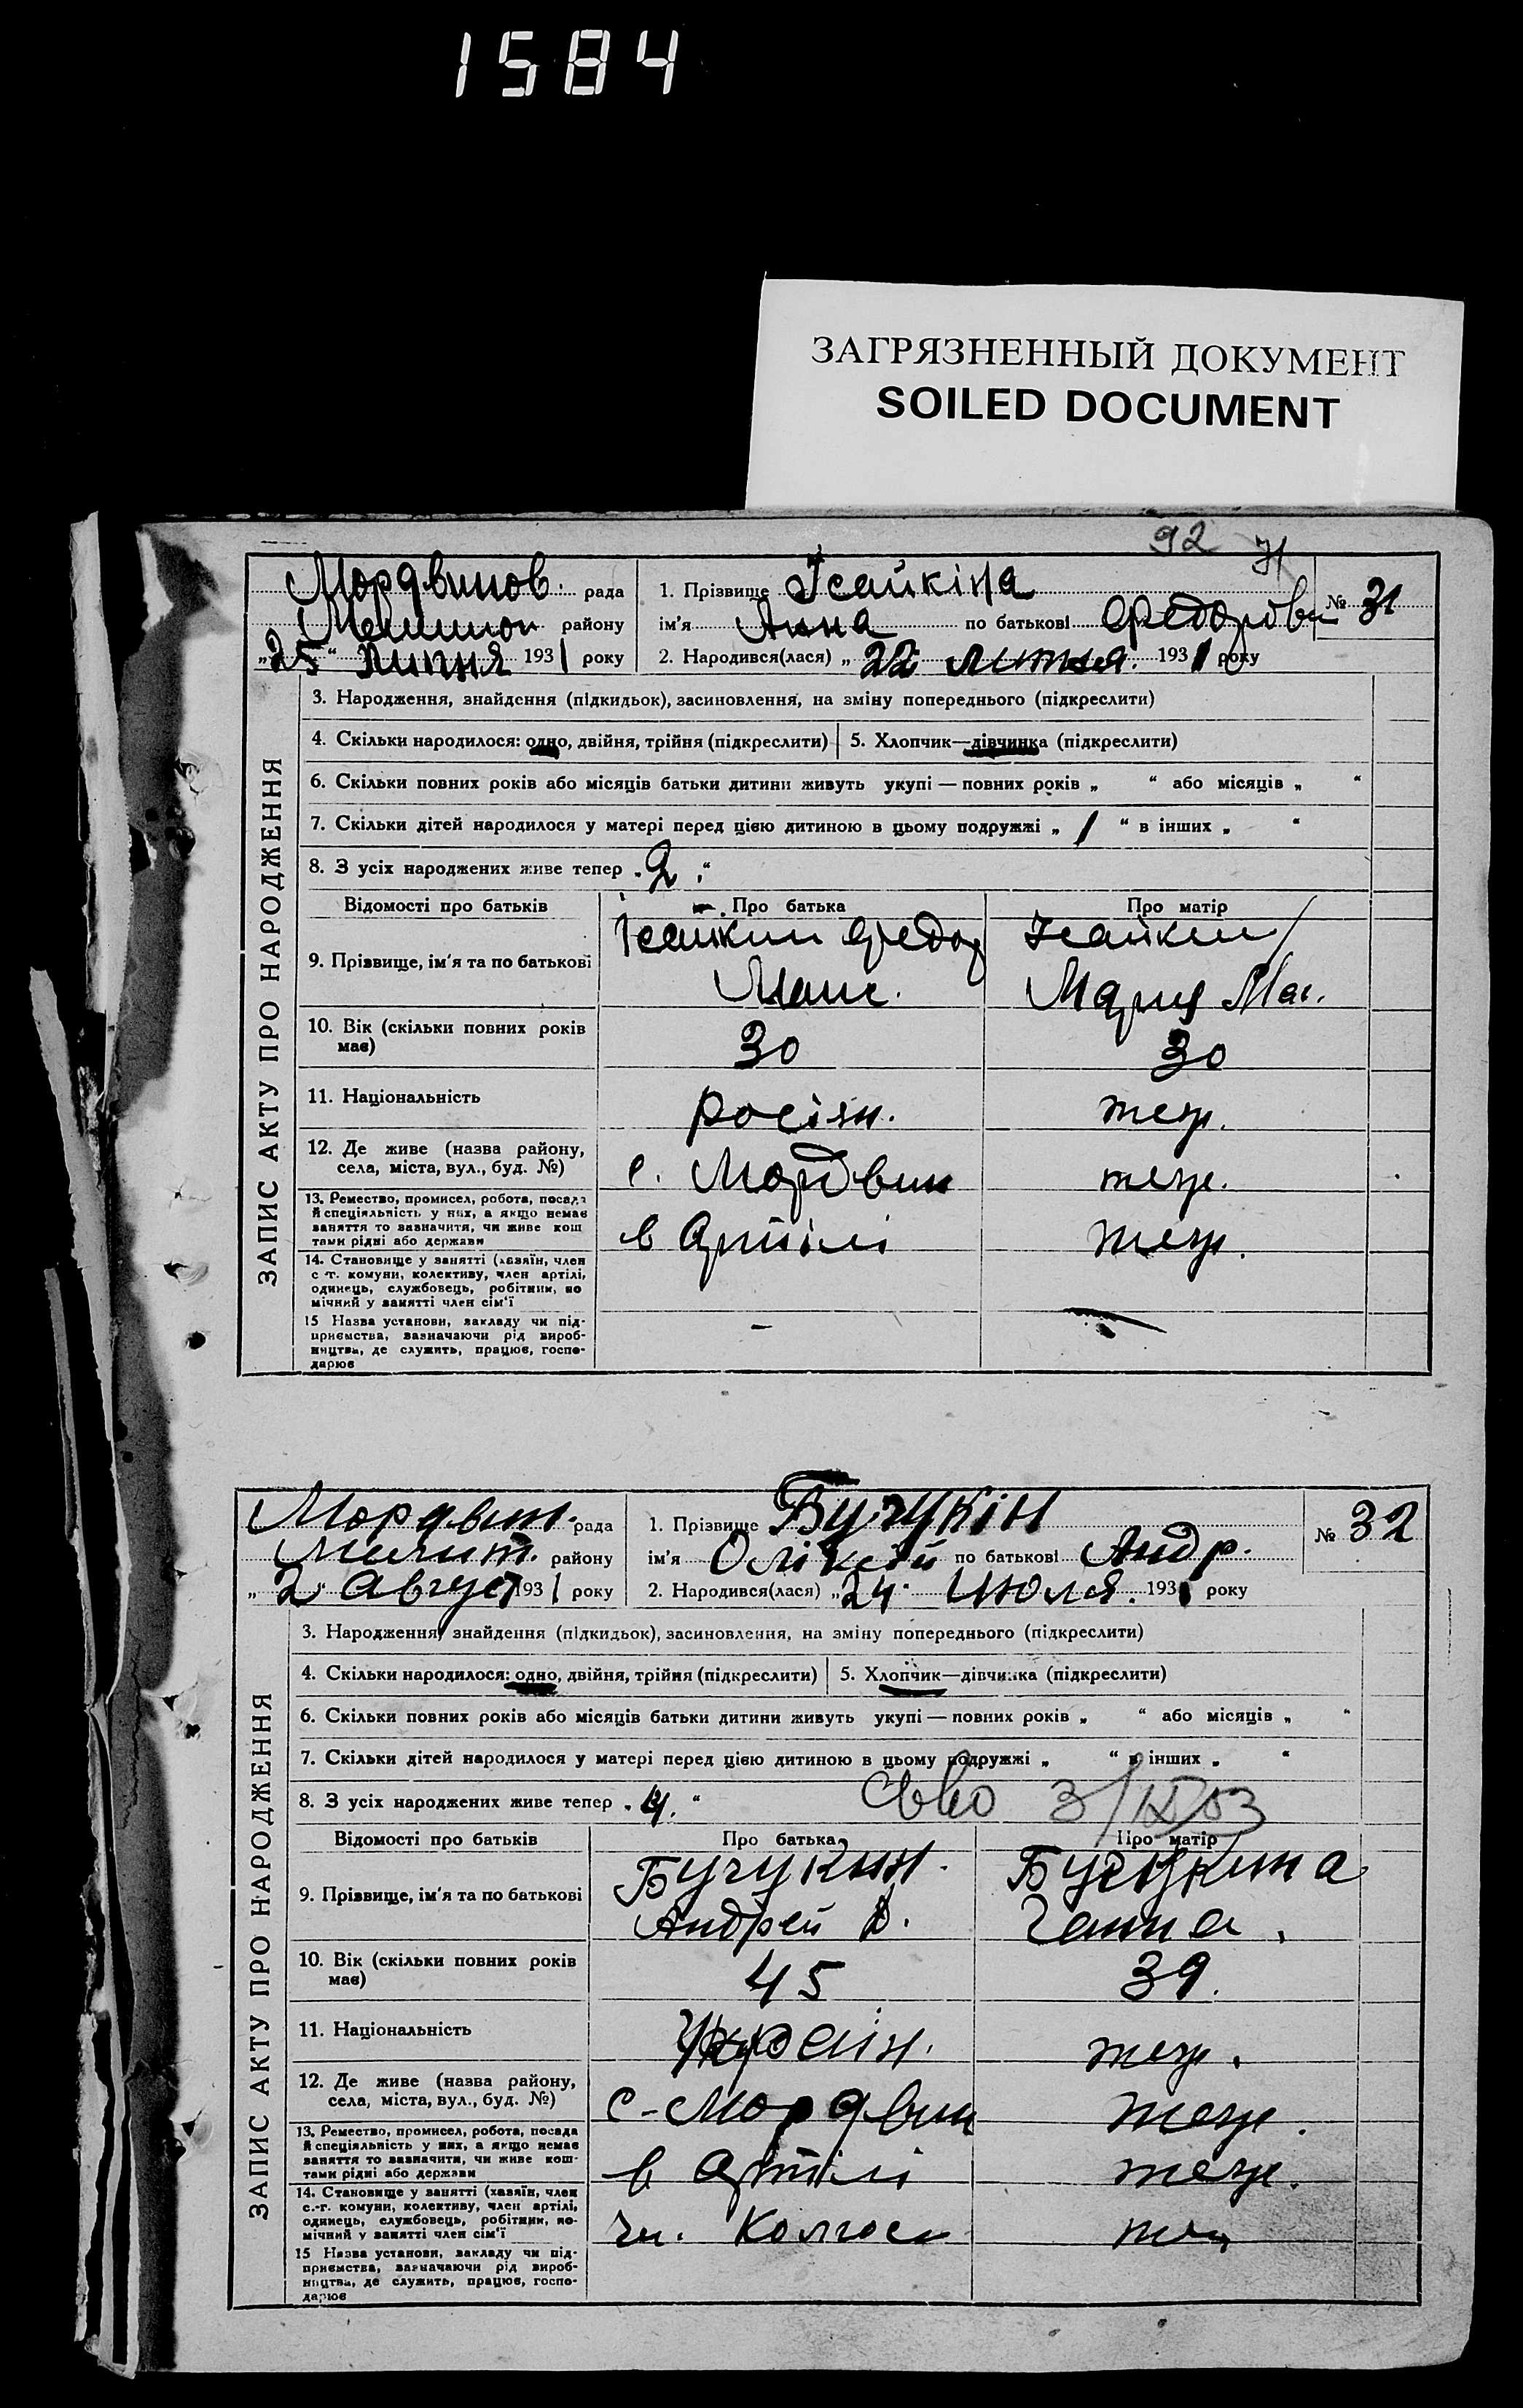 1584
ЗАГРЯЗНЕННЫЙ ДОКУМЕНТ
SOILED DOCUMENT
92
Мордвинов. рада
району
„25“ липня 1931 року
1. Прізвище Ісайкіна
ім'я Анна по батькові Федоровн
№ 31
2. Народився(лася) „22 липня. 1931 року
ЗАПИС АКТУ ПРО НАРОДЖЕННЯ
3. Народження, знайдення (підкидьок), засиновлення, на зміну попереднього (підкреслити)
4. Скільки народилося: одно, двійня, трійня (підкреслити) 5. Хлопчик—дівчинка (підкреслити)
6. Скільки повних років або місяців батьки дитини живуть укупі — повних років „ “ або місяців „ “
7. Скільки дітей народилося у матері перед цією дитиною в цьому подружжі „ 1 “ в інших „ “
8. З усіх народжених живе тепер „2“
Відомості про батьків Про батька Про матір
9. Прізвище, ім'я та по батькові Ісайкин Федор Исайкин
Мария
10. Вік (скільки повних років 30 30
має)
11. Національність росіян. теж.
12. Де живе (назва району, с. Мордвин теж.
села, міста, вул., буд. №)
13. Ремество, промисел, робота, посада в Артілі теж.
й спеціяльність у них, а якщо немає
заняття то зазначити, чи живе кош
тами рідні або держави
14. Становище у занятті (хазяїн, член
с.-г. комуни, колективу, член артілі,
одинець, службовець, робітник, по
мічний у занятті член сім'ї
15 Назва установи, закладу чи під-
приємства, зазначаючи рід вироб-
ництва, де служить, працює, госпо-
дарює
Мордвин. рада
Мелит. району
„2. Август 1931 року
1. Прізвище Бучукін
ім'я Олiксей по батькові Андр.
№ 32
2. Народився(лася) „24. Июля. 1931 року
ЗАПИС АКТУ ПРО НАРОДЖЕННЯ
3. Народження, знайдення (підкидьок), засиновлення, на зміну попереднього (підкреслити)
4. Скільки народилося: одно, двійня, трійня (підкреслити) 5. Хлопчик—дівчинка (підкреслити)
6. Скільки повних років або місяців батьки дитини живуть укупі — повних років „ “ або місяців „ “
7. Скільки дітей народилося у матері перед цією дитиною в цьому подружжі „ “ в інших „ “
8. З усіх народжених живе тепер „4.“ Св-во 3/IX 53
Відомості про батьків Про батька Про матір
9. Прізвище, ім'я та по батькові Бучукин. Бучукина
Андрей Ганна.
10. Вік (скільки повних років 45 39.
має)
11. Національність Україн. теж.
12. Де живе (назва району, с-Мордвин теж.
села, міста, вул., буд. №)
13. Ремество, промисел, робота, посада в Артілі теж.
й спеціяльність у них, а якщо немає
заняття то зазначити, чи живе кош-
тами рідні або держави
14. Становище у занятті (хазяїн, член чл. Колгосп теж
с.-г. комуни, колективу, член артілі,
одинець, службовець, робітник, по-
мічний у занятті член сім'ї
15 Назва установи, закладу чи під-
приємства, зазначаючи рід вироб-
ництва, де служить, працює, госпо-
дарює